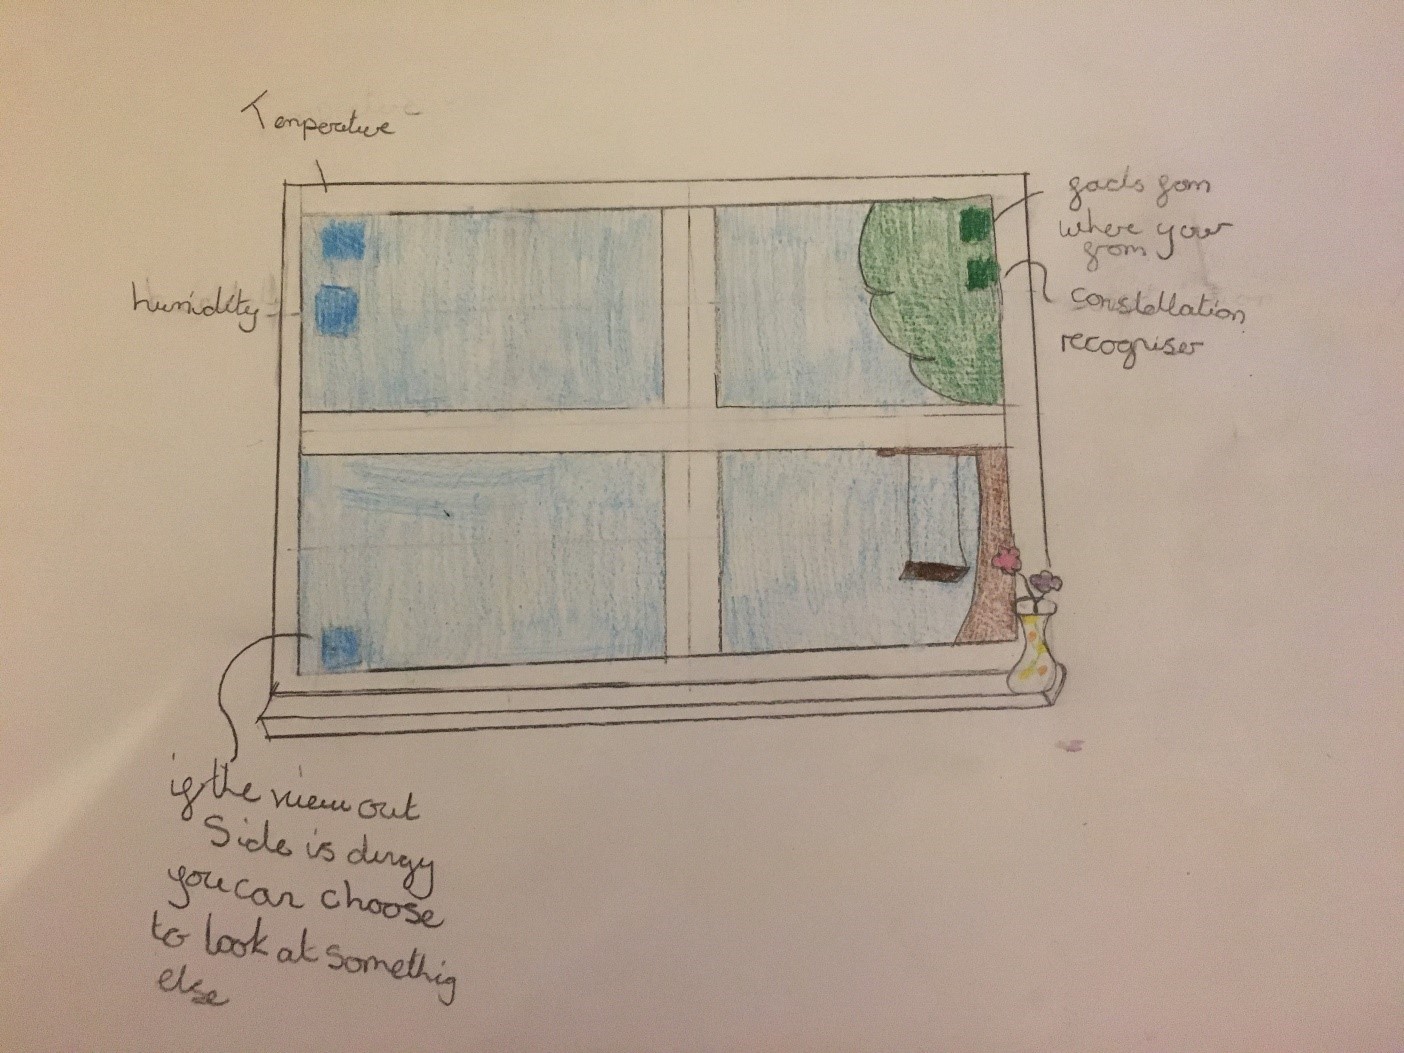 Temperature
humidity
facts from
where your
from
constellation
recogniser
if the view out
Side is dingy
you can choose
to look at somethig
else